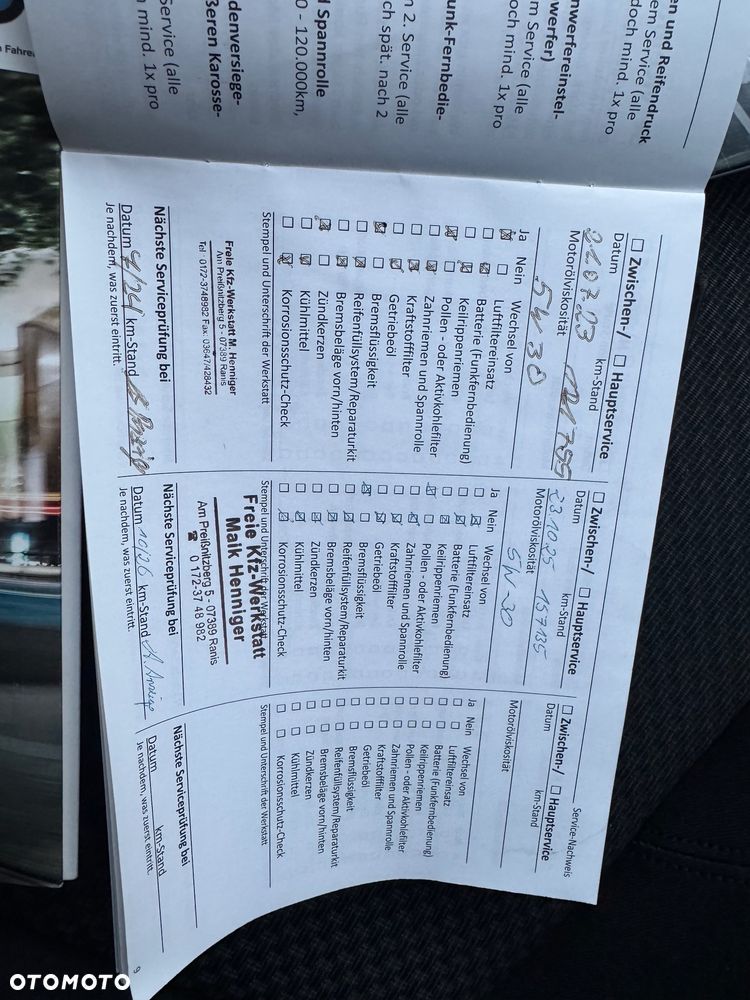 en und Reifendruck
em Service (alle
doch mind. 1x pro
nwerfereinstel-
werfer)
m Service (alle
och mind. 1x pro
unk-Fernbedie-
n 2. Service (alle
ch spät. nach 2
d Spannrolle
0 - 120.000km,
denversiege-
ßeren Karosse-
Service (alle
mind. 1x pro
☐ Zwischen-/ ☐ Hauptservice
Datum km-Stand
21.07.23
Motorölviskosität
5W30
Ja Nein Wechsel von
Luftfiltereinsatz
Batterie (Funkfernbedienung)
Keilrippenriemen
Pollen- oder Aktivkohlefilter
Zahnriemen und Spannrolle
Kraftstofffilter
Getriebeöl
Bremsflüssigkeit
Reifenfüllsystem/Reparaturkit
Bremsbeläge vorn/hinten
Zündkerzen
Kühlmittel
Korrosionsschutz-Check
Stempel und Unterschrift der Werkstatt
Freie Kfz-Werkstatt M. Henniger
Am Preißnitzberg 5 - 07389 Ranis
Tel. 0172-3748982 Fax: 03647/428432
Nächste Serviceprüfung bei
Datum 7/24 km-Stand
Je nachdem, was zuerst eintritt.
☐ Zwischen-/ ☐ Hauptservice
Datum km-Stand
23.10.25 157135
Motorölviskosität
5W-30
Ja Nein Wechsel von
Luftfiltereinsatz
Batterie (Funkfernbedienung)
Keilrippenriemen
Pollen- oder Aktivkohlefilter
Zahnriemen und Spannrolle
Kraftstofffilter
Getriebeöl
Bremsflüssigkeit
Reifenfüllsystem/Reparaturkit
Bremsbeläge vorn/hinten
Zündkerzen
Kühlmittel
Korrosionsschutz-Check
Stempel und Unterschrift der Werkstatt
Freie Kfz-Werkstatt
Maik Henniger
Am Preißnitzberg 5 - 07389 Ranis
☎ 0 172-37 48 982
Nächste Serviceprüfung bei
Datum 10/26 km-Stand
Je nachdem, was zuerst eintritt.
Service-Nachweis
☐ Zwischen-/ ☐ Hauptservice
Datum km-Stand
Motorölviskosität
Ja Nein Wechsel von
Luftfiltereinsatz
Batterie (Funkfernbedienung)
Keilrippenriemen
Pollen- oder Aktivkohlefilter
Zahnriemen und Spannrolle
Kraftstofffilter
Getriebeöl
Bremsflüssigkeit
Reifenfüllsystem/Reparaturkit
Bremsbeläge vorn/hinten
Zündkerzen
Kühlmittel
Korrosionsschutz-Check
Stempel und Unterschrift der Werkstatt
Nächste Serviceprüfung bei
Datum km-Stand
Je nachdem, was zuerst eintritt.
9
OTOMOTO